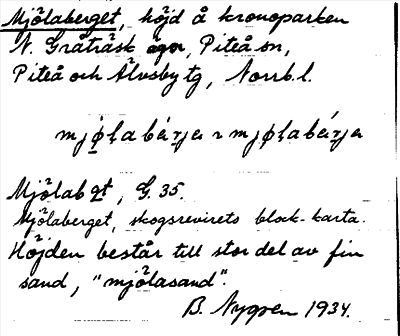 Mjölaberget, höjd å kronoparken
N. Gråträsk ägor, Piteå sn,
Piteå och Älvsby tg, Norrb. l.
mjö̩labér̨je ɿ mjö̩labér̨je
Mjölabgt, G. 35.
Mjölaberget, skogsrevirets block-karta.
Höjden består till stor del av fin
sand, "mjölasand".
B. Nygren 1934.